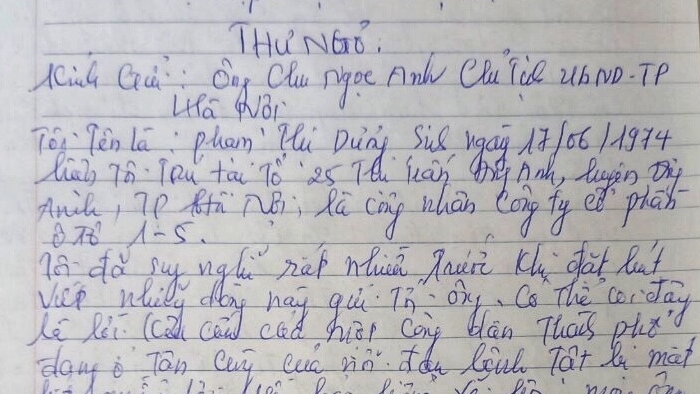 THƯ NGỎ.
Kính Gửi: Ông Chu Ngọc Anh Chủ Tịch UBND-TP
Hà Nội
Tôi Tên là: Phạm Thị Dung Sinh ngày 17/06/1974
hiện Tôi Trú tại Tổ 25 Thị trấn Đông Anh, huyện Đông
Anh, TP Hà Nội, là công nhân Công ty cổ phần
ô Tô 1-5.
Tôi đã suy nghĩ rất nhiều Trước Khi đặt bút
Viết những dòng này gửi Tới ông. Có Thể Coi đây
là lời Cầu cứu của một Công dân Thành phố
đang ở Tận Cùng của nỗi đau bệnh Tật bị mất